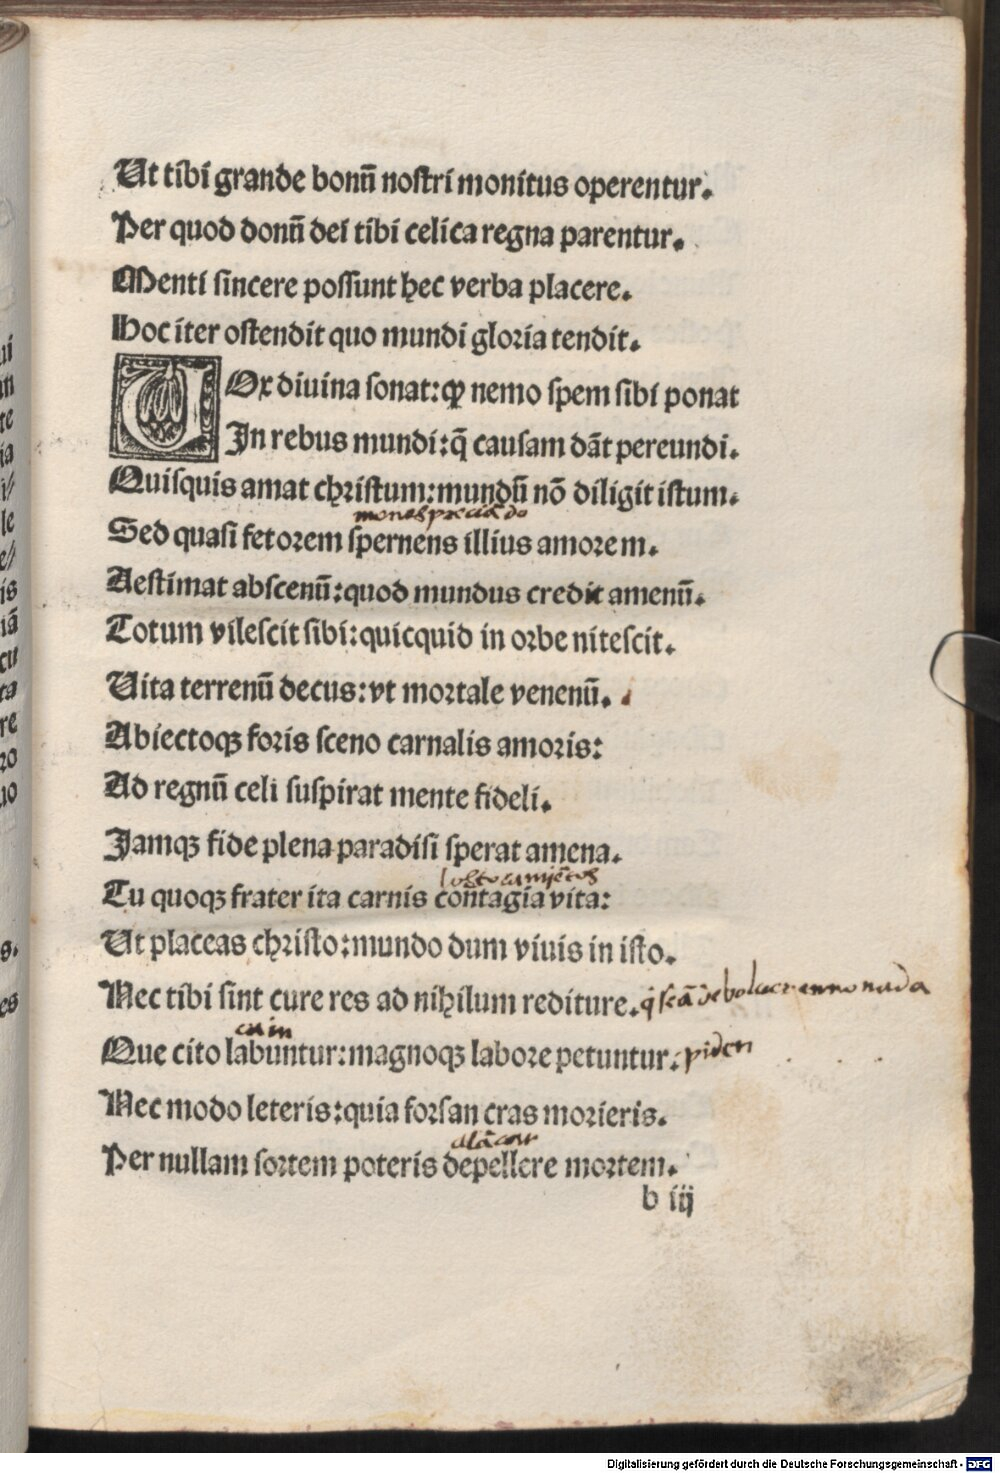 Ut tibi grande bonū noſtri monitus operentur.
Per quod donū dei tibi celica regna parentur.
Menti ſincere poſſunt hec verba placere.
Hoc iter oſtendit quo mundi gloria tendit.
VOx diuina ſonat: ꝙ nemo ſpem ſibi ponat
In rebus mundi: q̄ cauſam dāt pereundi.
Quiſquis amat chriſtum: mundū nō diligit iſtum.
menospreciādo
Sed quaſi fetorem ſpernens illius amorem.
Aeſtimat abſcenū: quod mundus credit amenū.
Totum vileſcit ſibi: quicquid in orbe niteſcit.
Uita terrenū decus: vt mortale venenū.
Abiectoqꝫ foris ſceno carnalis amoris:
Ad regnū celi ſuſpirat mente fideli.
Jamqꝫ fide plena paradiſi ſperat amena.
los tocamiētos
Tu quoqꝫ frater ita carnis contagia vita:
Ut placeas chriſto: mundo dum viuis in iſto.
Nec tibi ſint cure res ad nihilum rediture. q̄ ſeā de bolver en no nada
cain
Que cito labuntur: magnoqꝫ labore petuntur: piden
Nec modo leteris: quia forſan cras morieris.
alāçar
Per nullam ſortem poteris depellere mortem.
b iij
ui
in
te
ia
le
is
iā
cu
ta
re
ro
uo
s.
es
Digitalisierung gefördert durch die Deutsche Forschungsgemeinschaft - DFG